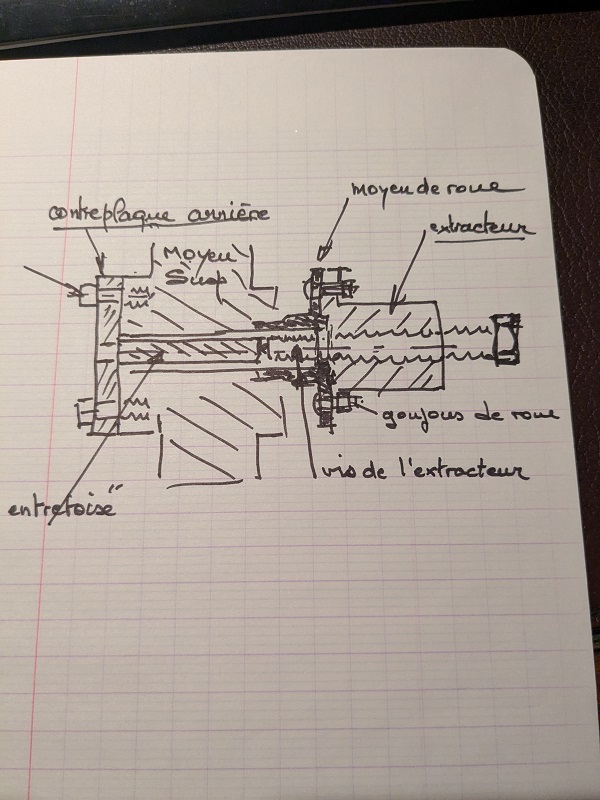 moyeu de roue
contreplaque arrière
extracteur
Moyeu
Susp
goujons de roue
vis de l'extracteur
entretoise"